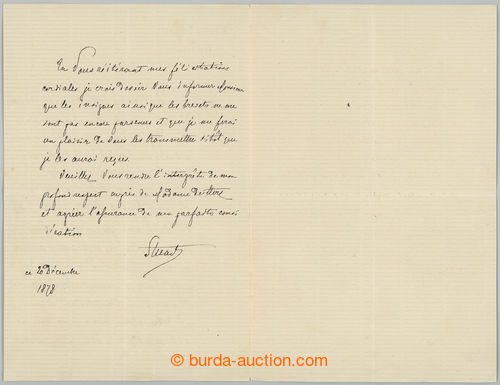 En Vous réitérant mes félicitations
cordiales je crois devoir Vous informer Monsieur
que les insignes ainsi que les brevets ne me
sont pas encore parvenus et que je me ferai
un plaisir de Vous les transmettre sitôt que
je les aurai reçus.
Veuillez Vous rendre l'interprête de mon
profond respect auprès de Madame de
et agréer l'assurance de ma parfaite consi
dération
ce 20 Décembre
1878
© burda-auction.com